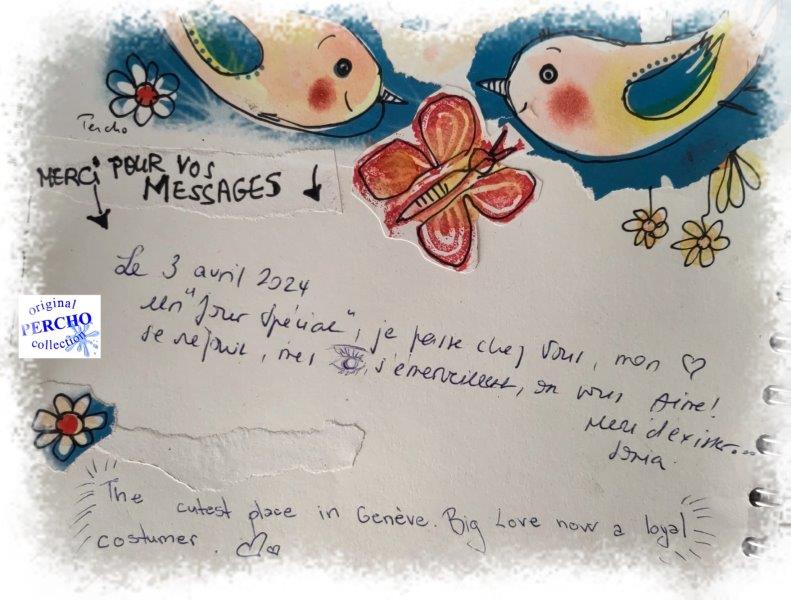 Percho
MERCI POUR VOS
MESSAGES
original
PERCHO
collection
Le 3 avril 2024
un "Jour Spécial", je passe chez vous, mon
se réjouit, mes s'émerveillent, on vous Aime!
Merci d'exister...
The cutest place in Genève. Big Love now a loyal
costumer.